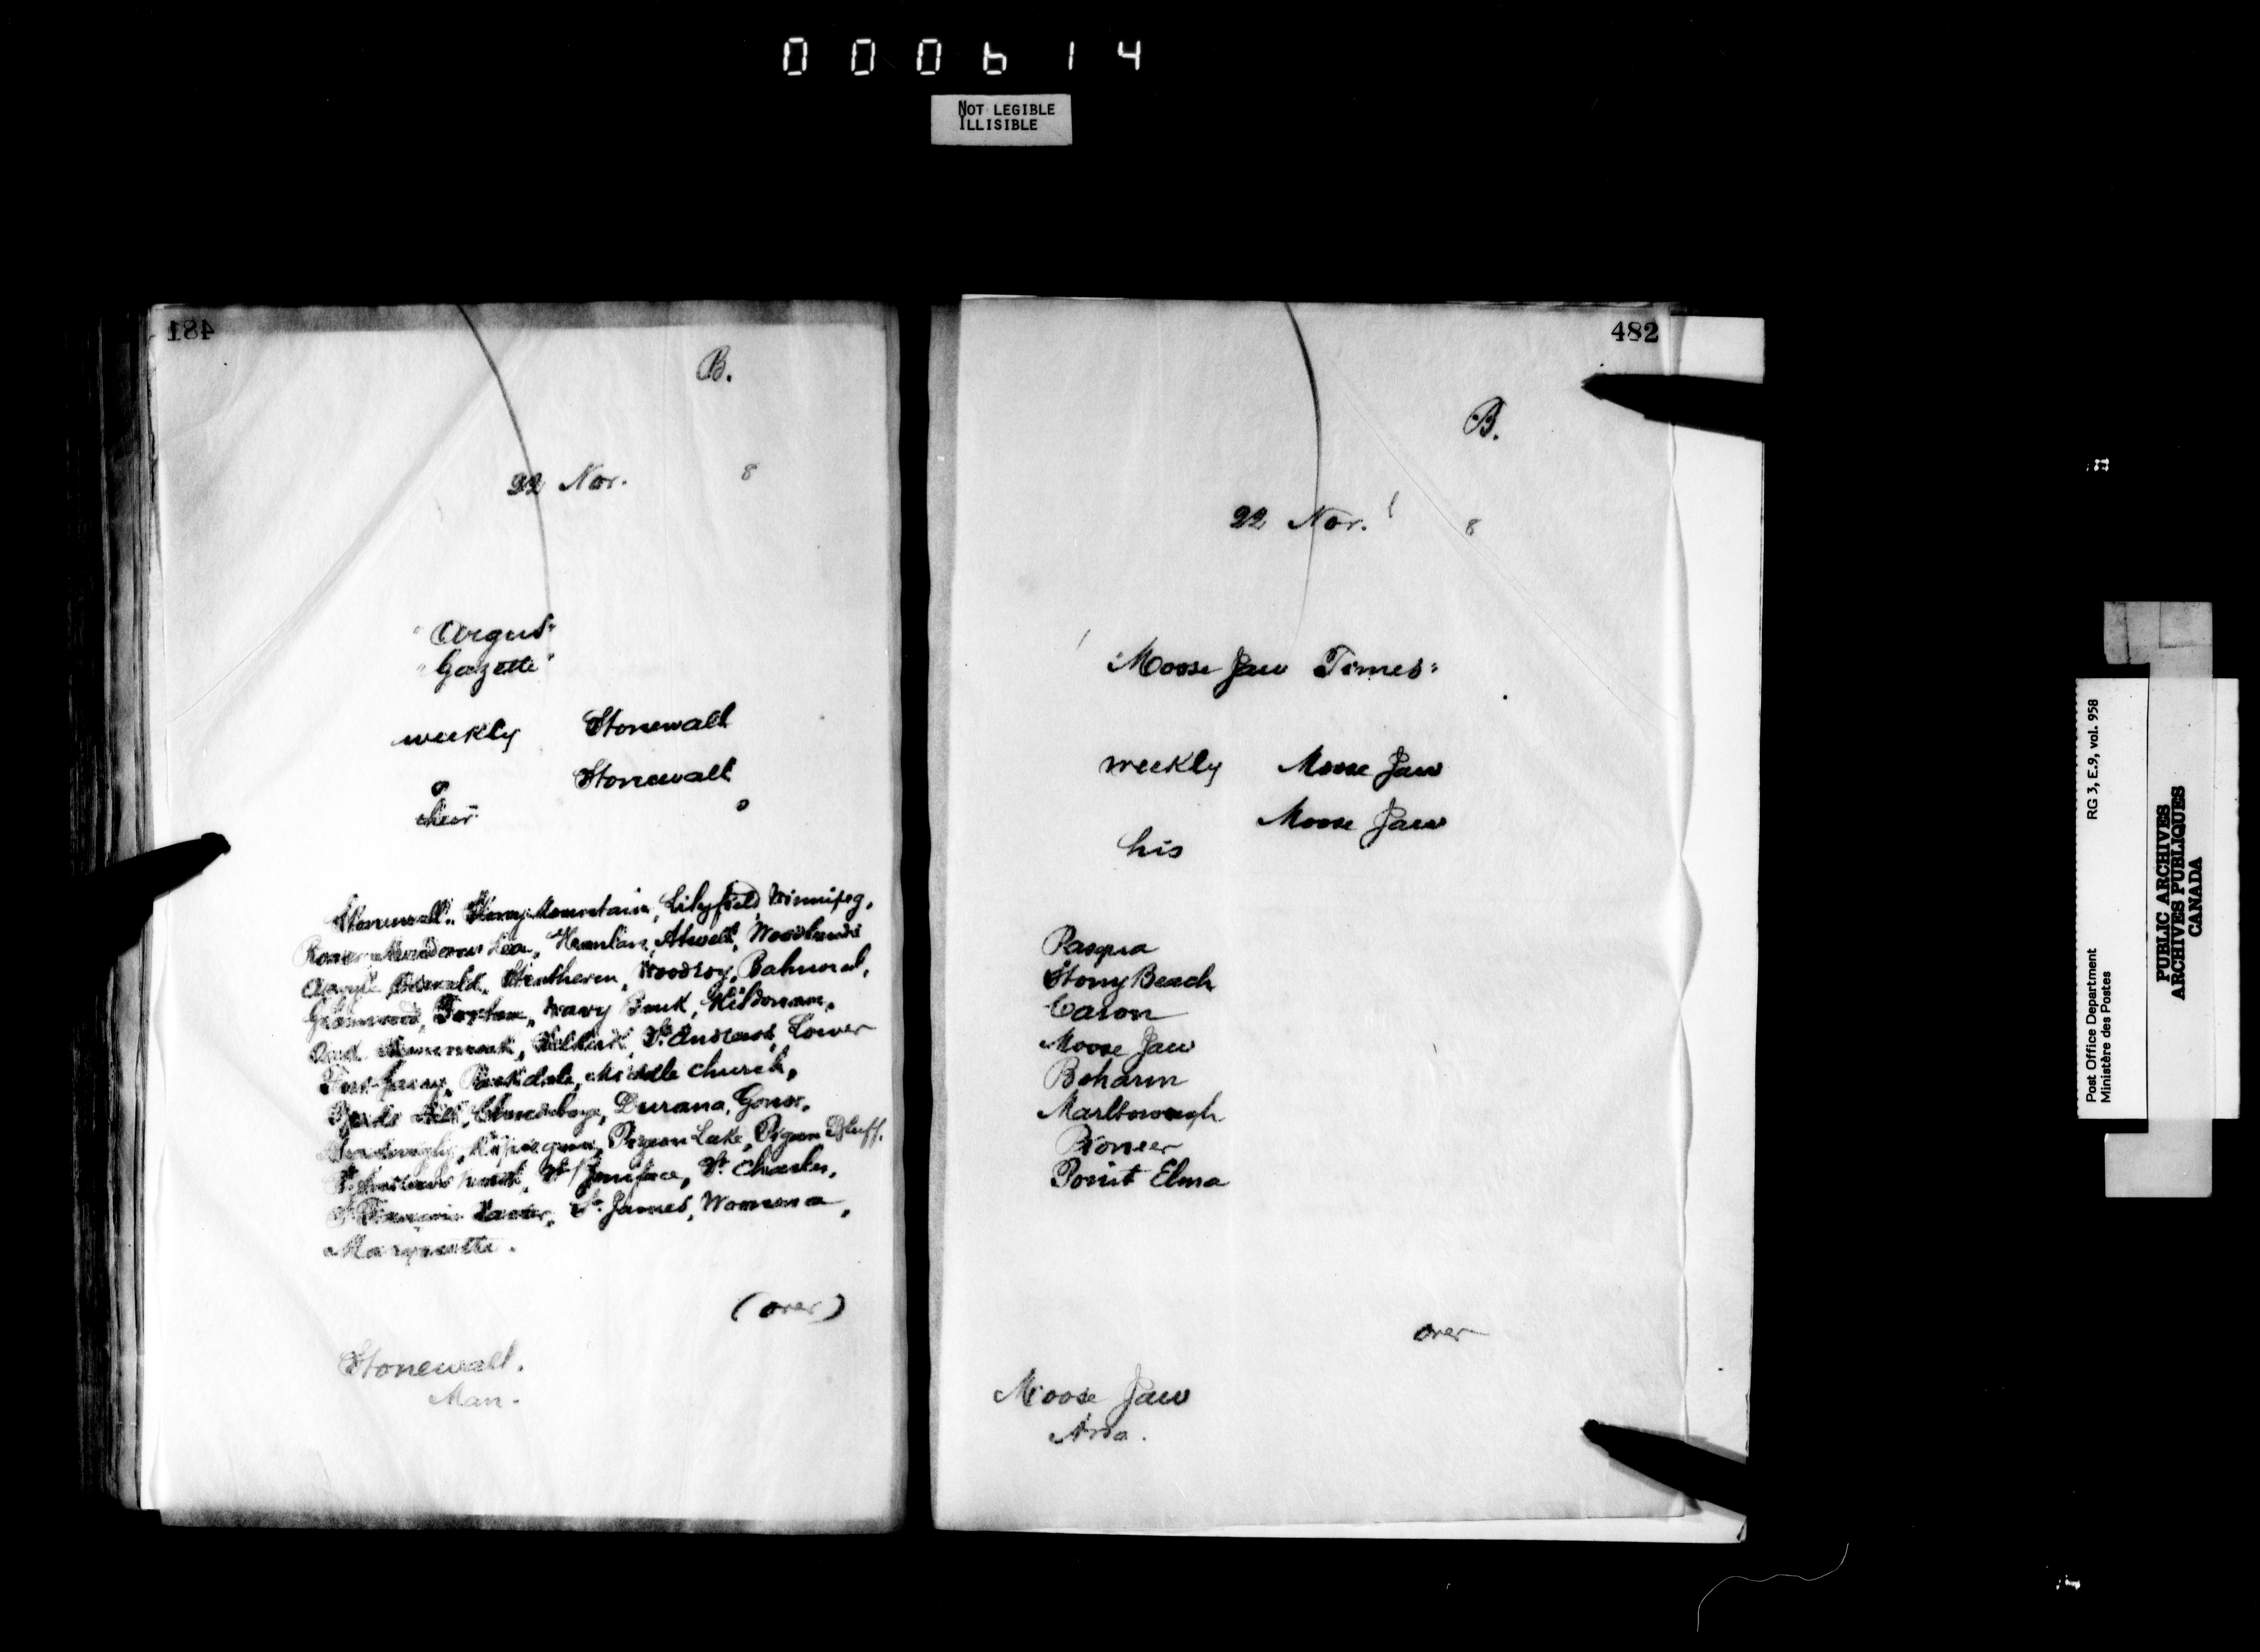 000614
NOT LEGIBLE
ILLISIBLE
481
B.
22 Nov. 8
"Argus"
"Gazette"
weekly Stonewall
Stonewall
their
Stonewall, Stony Mountain, Lilyfield, Winnipeg,
Meadow Lea, Hanlan, Atwell, Woodlands
Argyle, Woodroy, Balmoral,
Foxton, Wavy Bank, Kildonan,
Selkirk, St. Andrews, Lower
Fort Garry, Parkdale, Middle Church,
Birds Hill, Clandeboye, Gonor,
Pigeon Lake, Pigeon Bluff,
St. Boniface, St. Charles,
St. Francois Xavier, St. James,
Marquette.
(over)
Stonewall.
Man.
482
B.
22 Nov. 8
"Moose Jaw Times"
weekly Moose Jaw
Moose Jaw
his
Pasqua
Stony Beach
Caron
Moose Jaw
Boharm
Marlborough
Pioneer
Point Elma
over
Moose Jaw
Assa.
Post Office Department RG 3, E.9, vol. 958
Ministère des Postes
PUBLIC ARCHIVES
ARCHIVES PUBLIQUES
CANADA